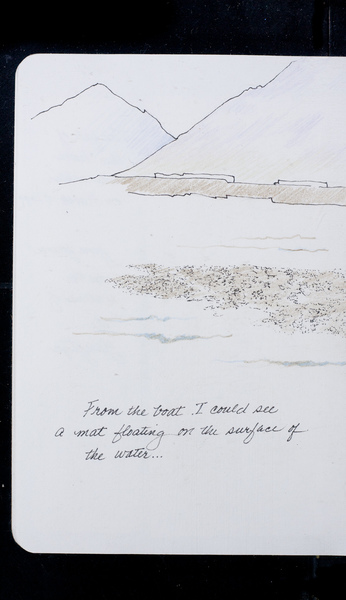 From the boat I could see
a mat floating on the surface of
the water...